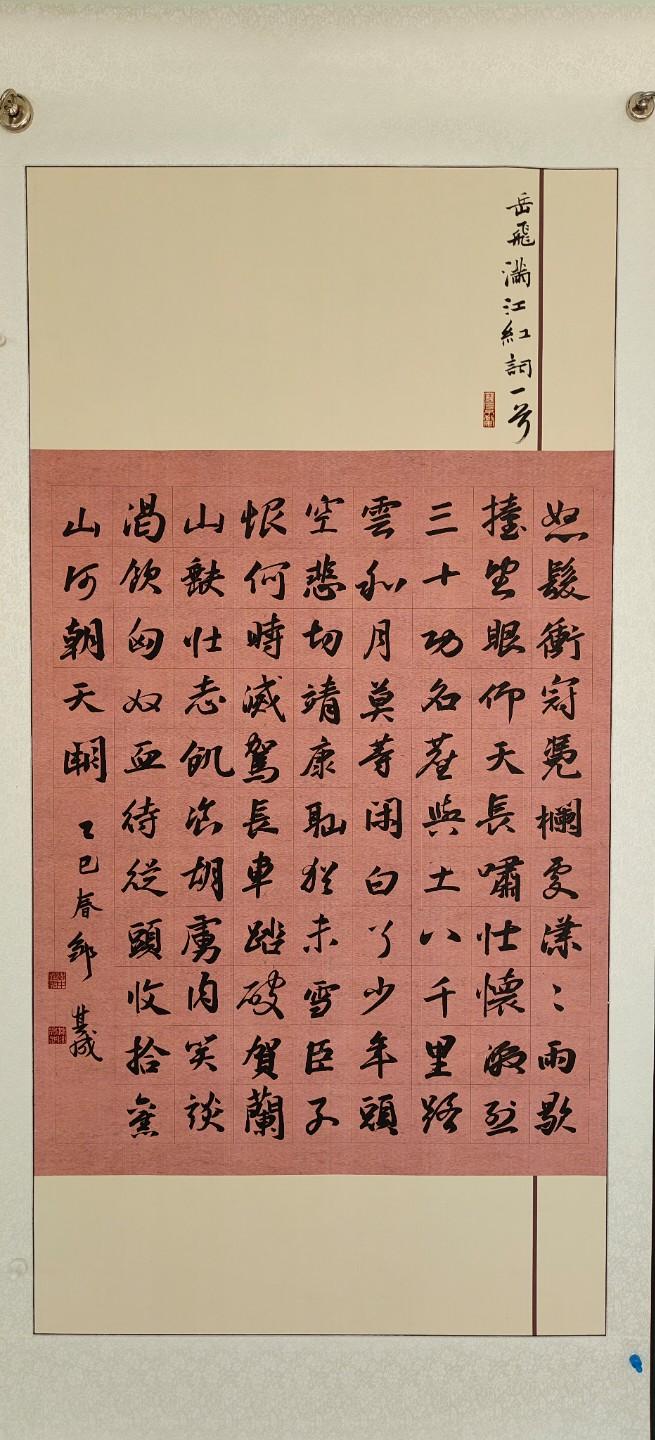 岳飛滿江紅詞一首
怒髮衝冠凭欄處瀟〻雨歇
擡望眼仰天長嘯壯懷激烈
三十功名塵與土八千里路
雲和月莫等閑白了少年頭
空悲切靖康耻猶未雪臣子
恨何時滅駕長車踏破賀蘭
山缺壯志飢餐胡虜肉笑談
渴飲匈奴血待從頭收拾舊
山河朝天闕
乙巳春 其成